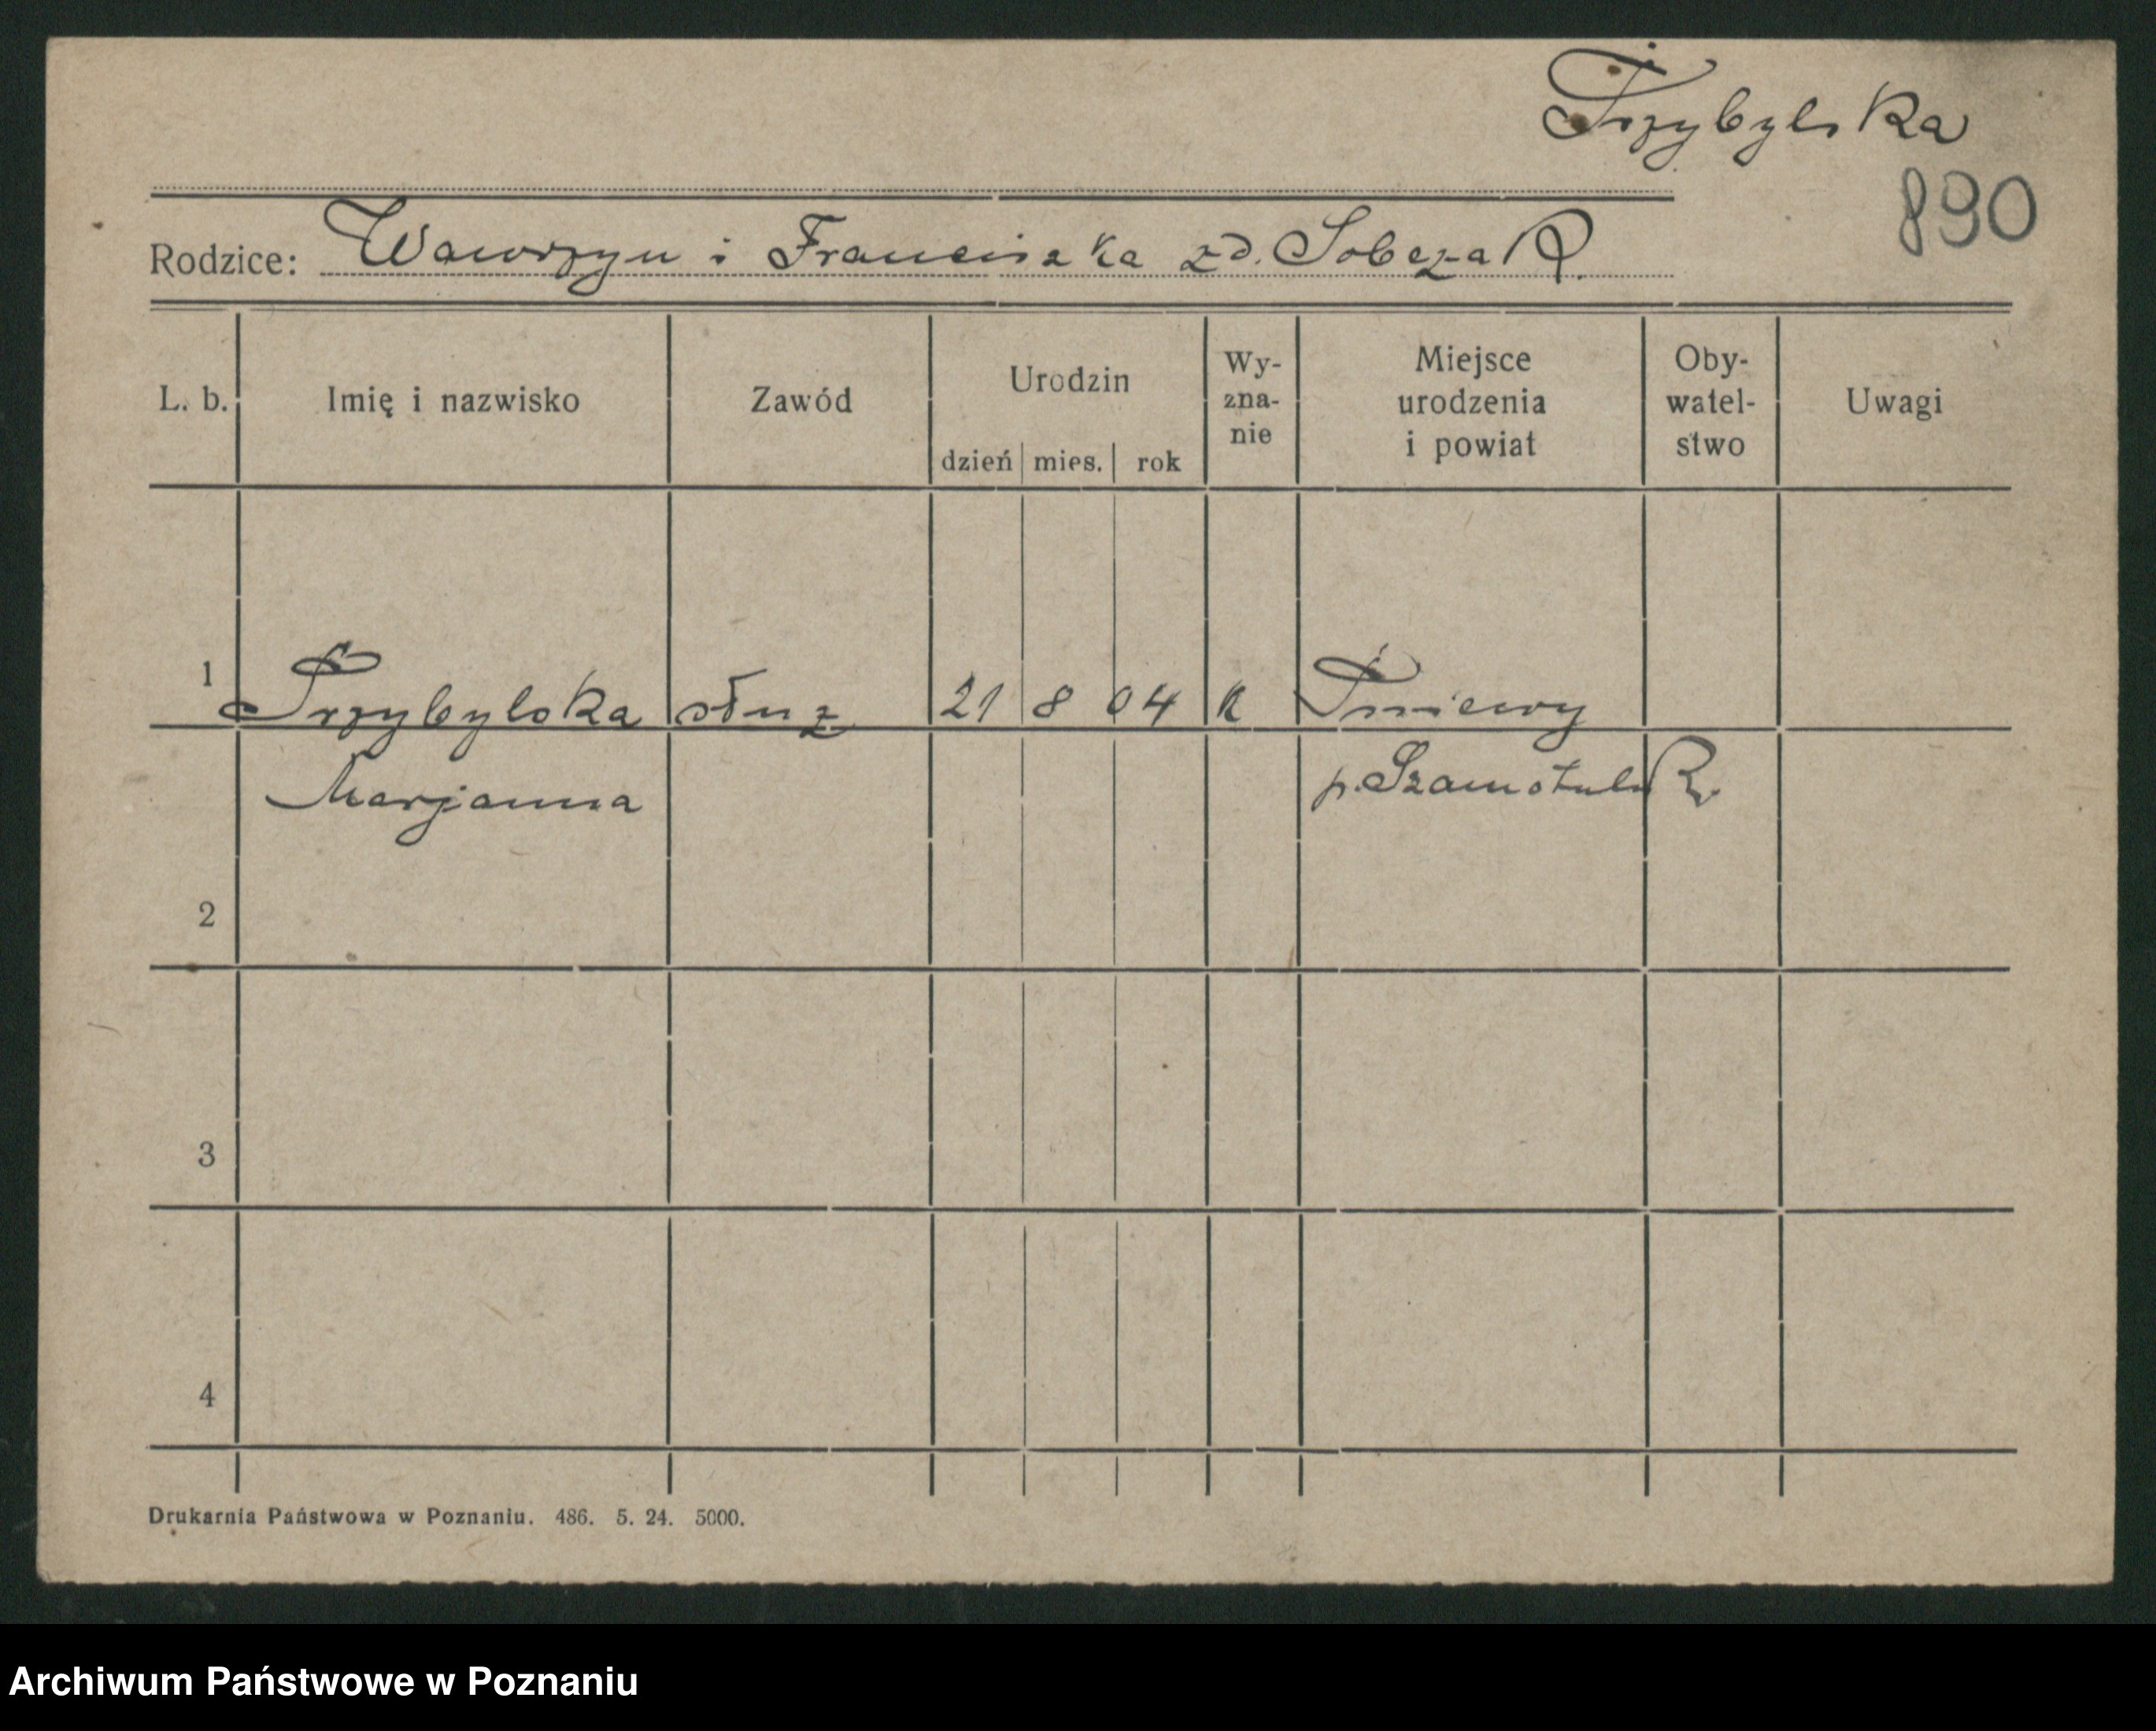 Przybylska
890
Rodzice: Wawrzyn i Franciszka zd. Sobczak.
L. b. Imię i nazwisko Zawód Urodzin dzień mies. rok Wy-zna-nie Miejsce urodzenia i powiat Oby-watel-stwo Uwagi
1 Przybylska służ 21 8 04 k Pniewy
Marjanna p. Szamotuły
2
3
4
Drukarnia Państwowa w Poznaniu. 486. 5. 24. 5000.
Archiwum Państwowe w Poznaniu